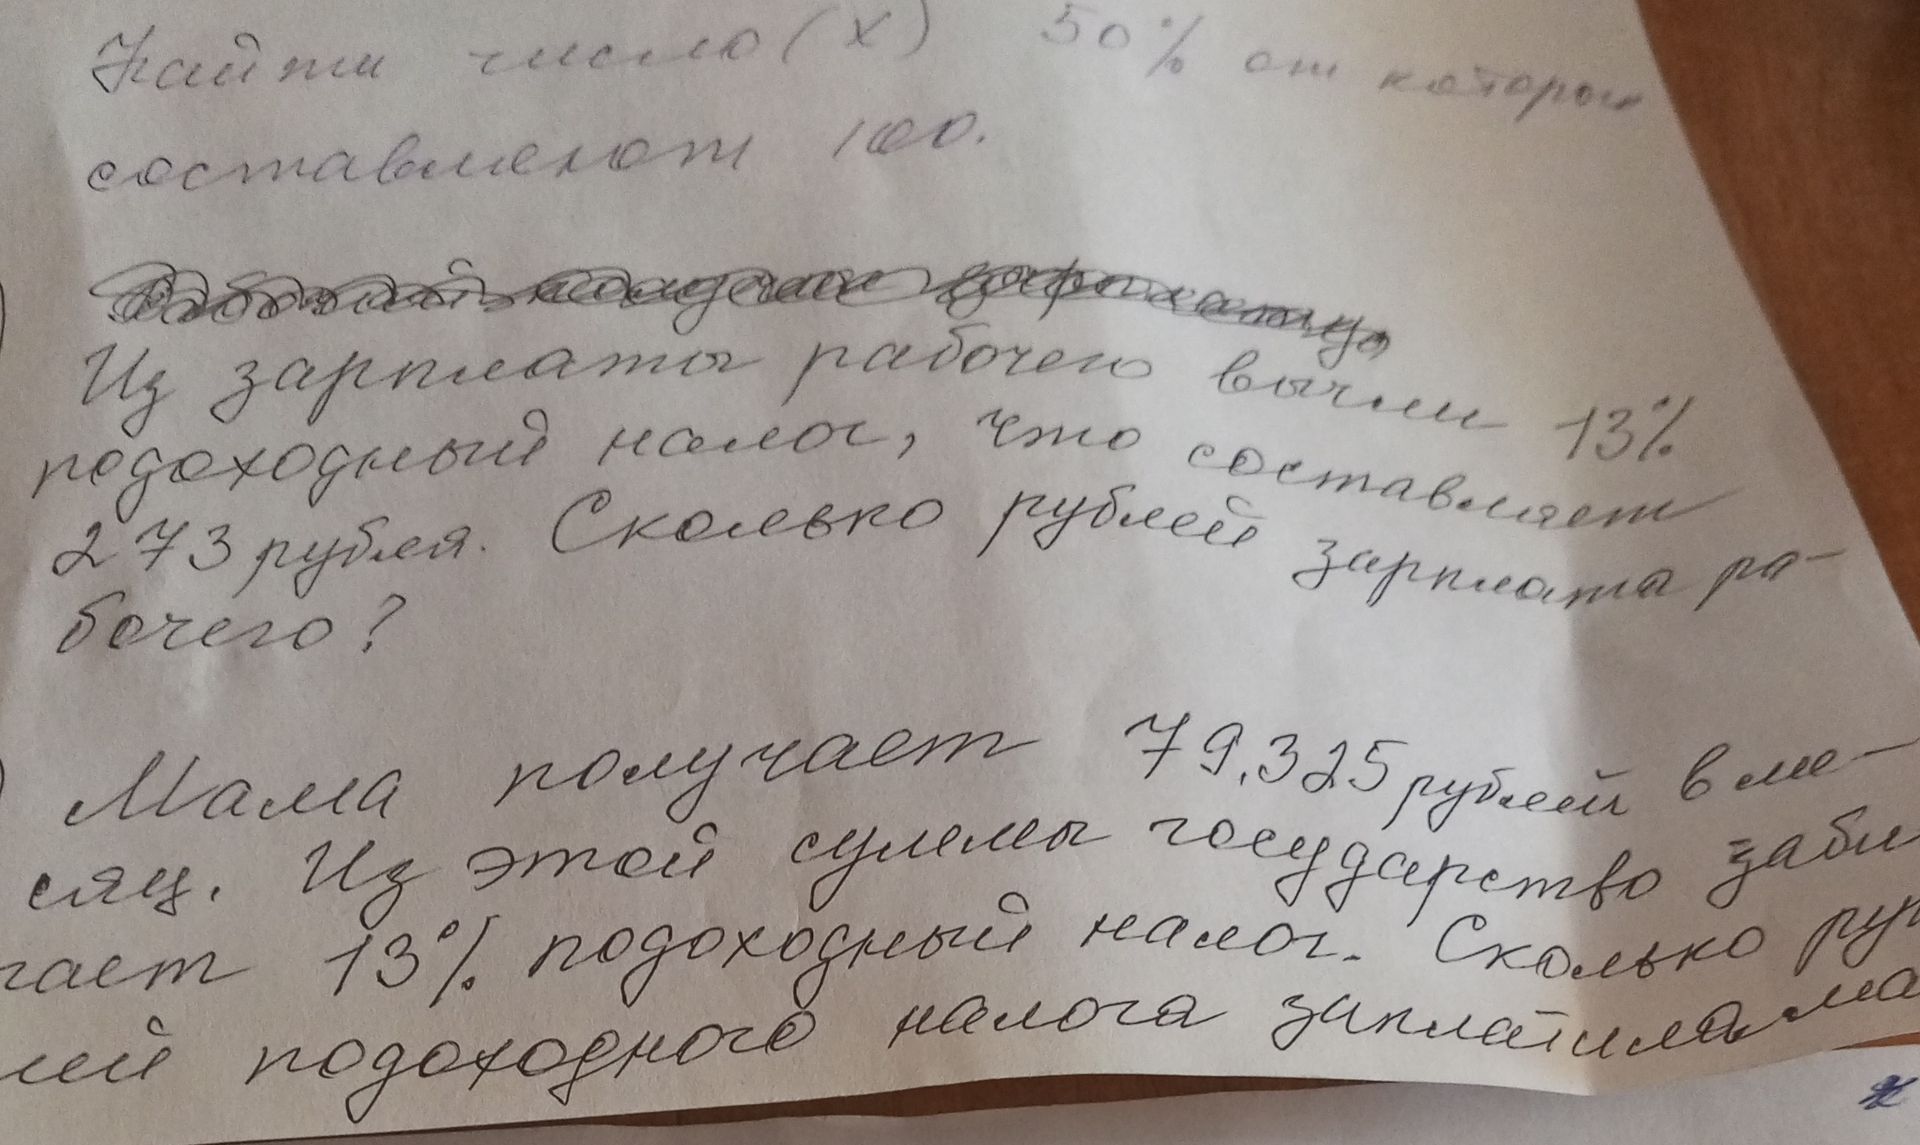 Найти число (х) 50% от которых
составляют 100.
Из зарплаты рабочего вычли 13%
подоходный налог, что составляет
273 рубля. Сколько рублей зарплата ра-
бочего?
Мама получает 79.325 рублей в ме-
сяц. Из этой суммы государство заби
гает 13% подоходный налог. Сколько руб
лей подоходного налога заплатила ма